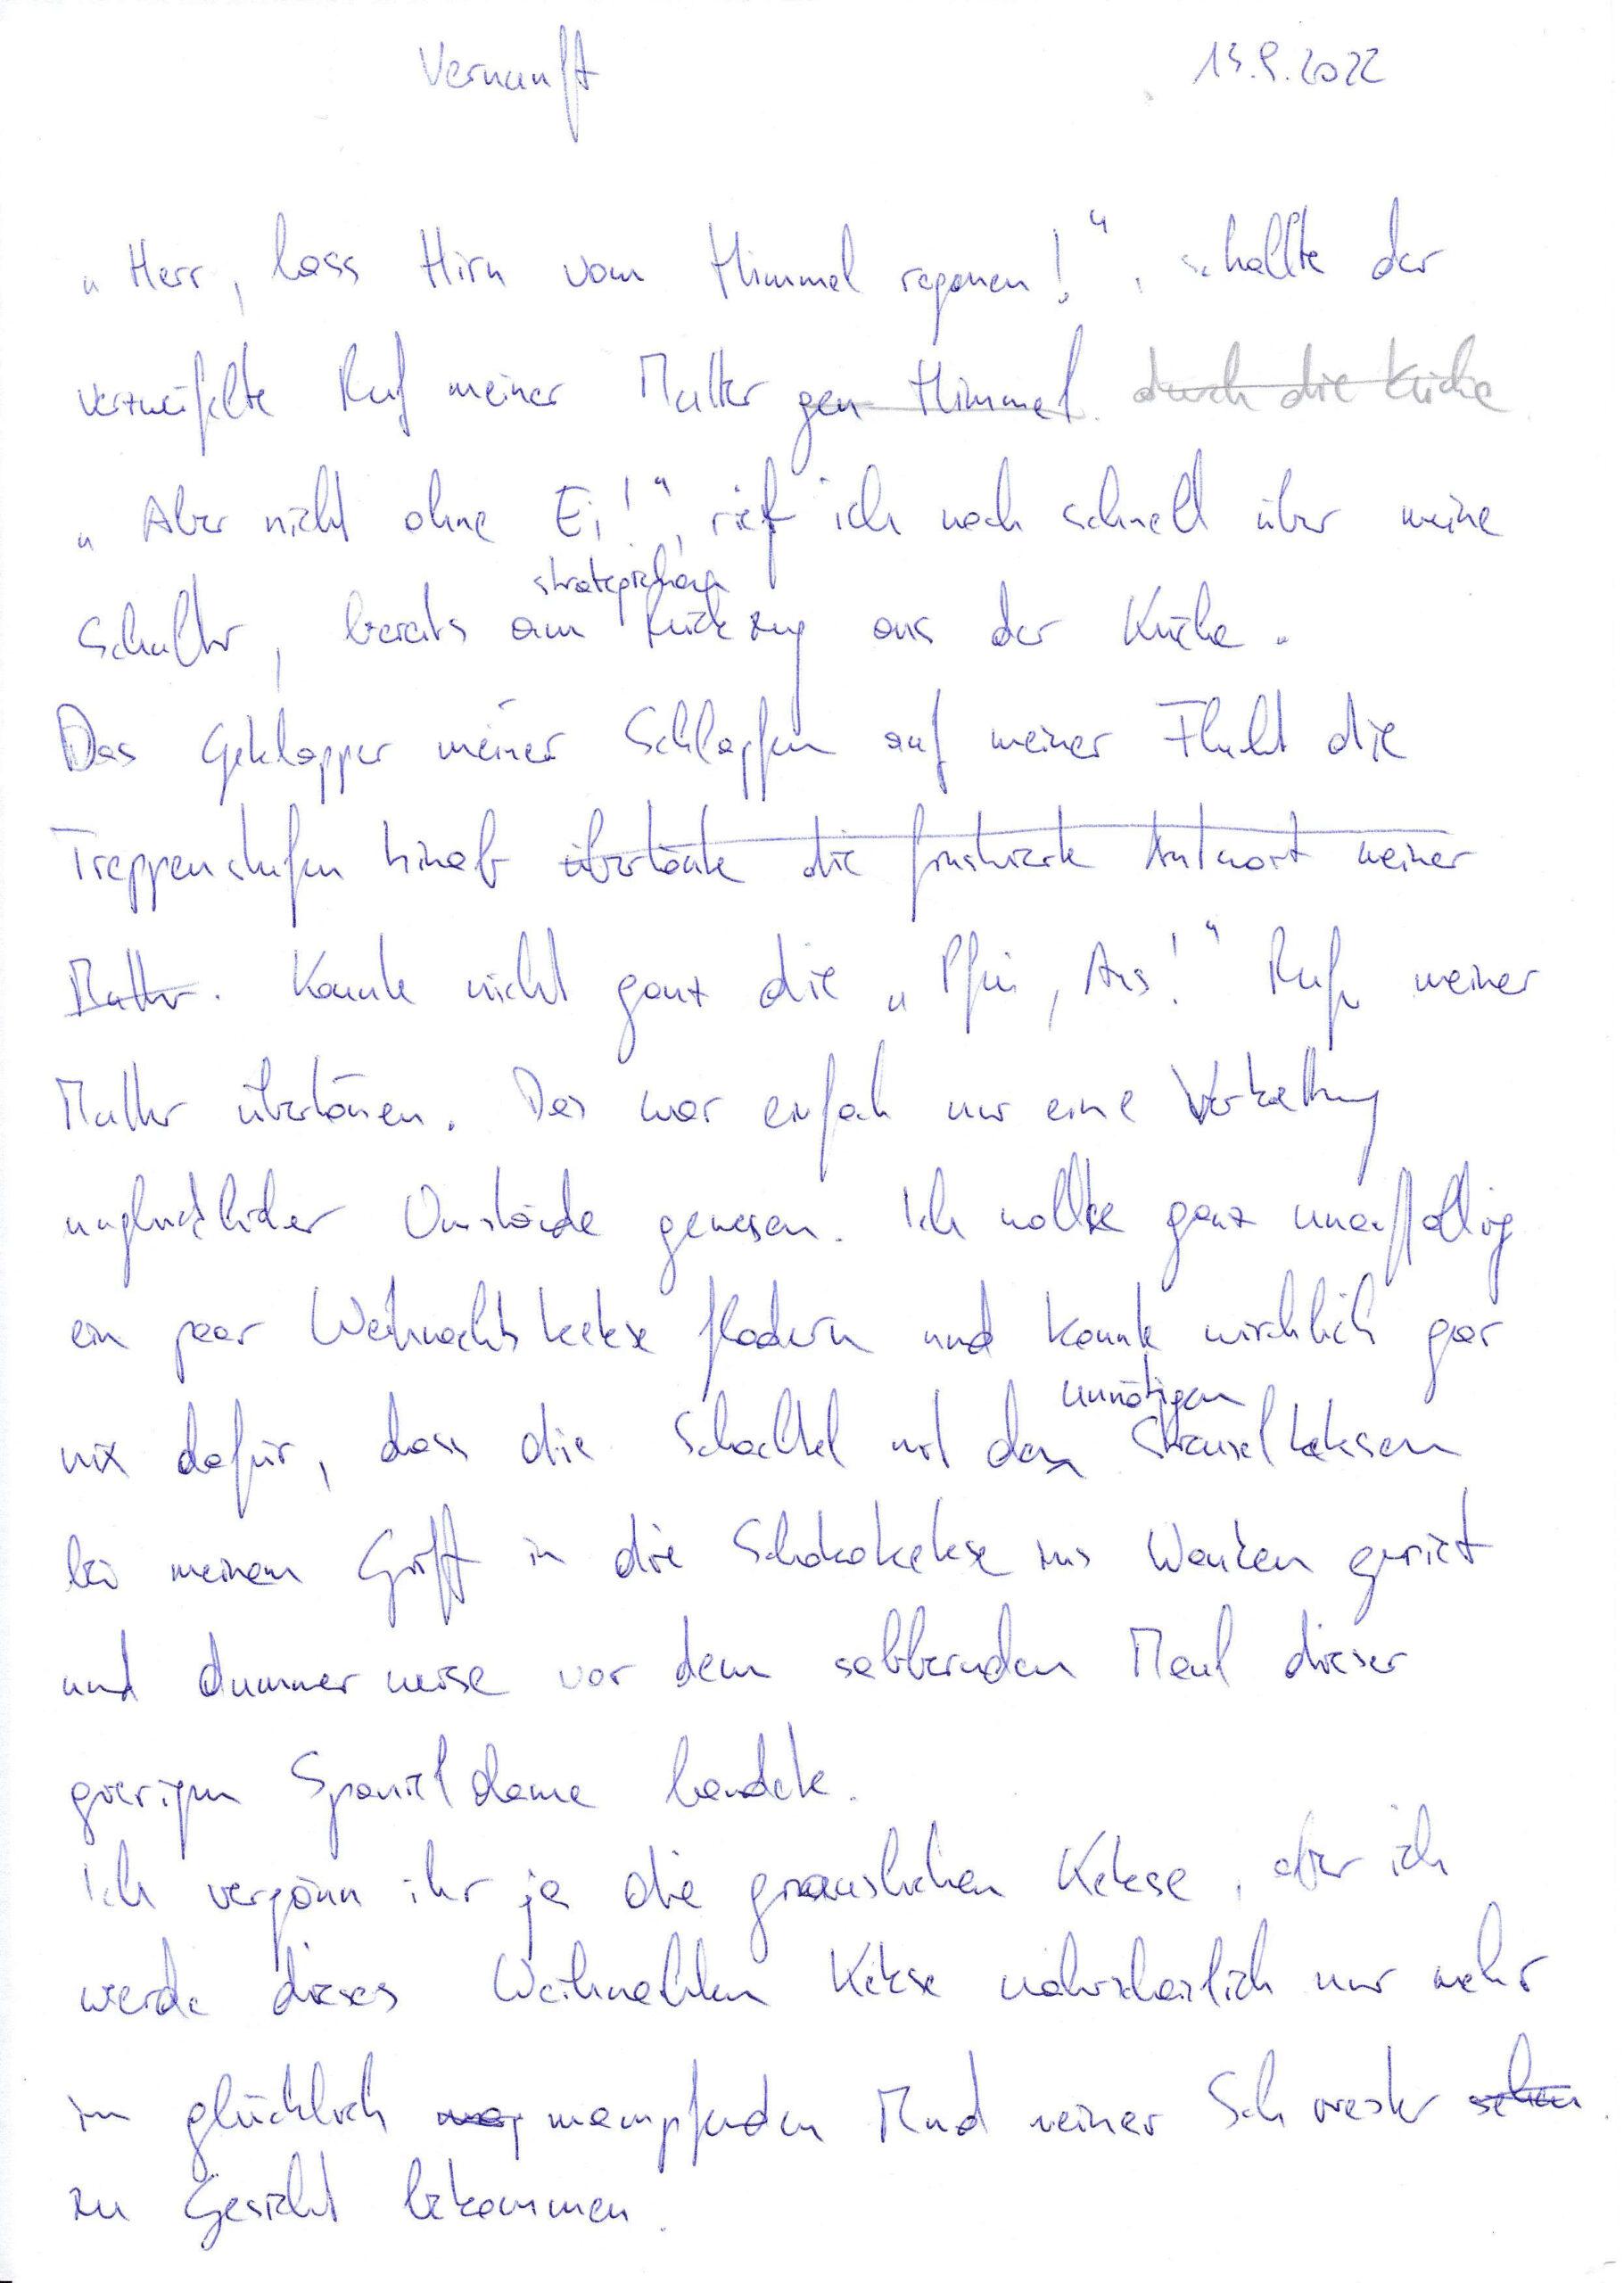 Vernunft 13.9.2022
„Herr, lass Hirn vom Himmel regnen!“, schallte der
verzweifelte Ruf meiner Mutter gen Himmel. durch die Küche
„Aber nicht ohne Ei!“, rief ich noch schnell über meine
strategischen
Schulter, bereits am Rückzug aus der Küche.
Das Geklapper meiner Schlapfen auf meiner Flucht die
Treppenstufen hinab übertönte die frustrierte Antwort meiner
Mutter. Konnte nicht ganz die „Pfui, Aus!“ Rufe meiner
Mutter übertönen. Das war einfach nur eine Verkettung
unglücklicher Umstände gewesen. Ich wollte ganz unauffällig
ein paar Weihnachtskekse fladern und konnte wirklich gar
unnötigen
nix dafür, dass die Schachtel mit den Streuselkeksen
bei meinem Griff in die Schokokekse ins Wanken geriet
und dummerweise vor dem sabbernden Maul dieser
gierigen Spanieldame landete.
Ich vergönn ihr ja die grauslichen Kekse, aber ich
werde dieses Weihnachten Kekse wahrscheinlich nur mehr
im glücklich mampfenden Mund meiner Schwester sehen.
zu Gesicht bekommen.